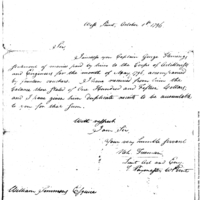 West Point, October 1st 1796
Sir,
I enclose you Captain George Fleming's
of monies paid by him to the Corps of Artillerists
and Engineers for the month of May 1796, accompanied
by vouchers. I have received from him the
balance then of One Hundred and Fifteen Dollars,
and I have given him duplicate receipts to be accountable
to you for that sum.
With respect
I am Sir,
Your very humble servant
Lieut Art and Eng
Paymaster
William Simmons Esquire